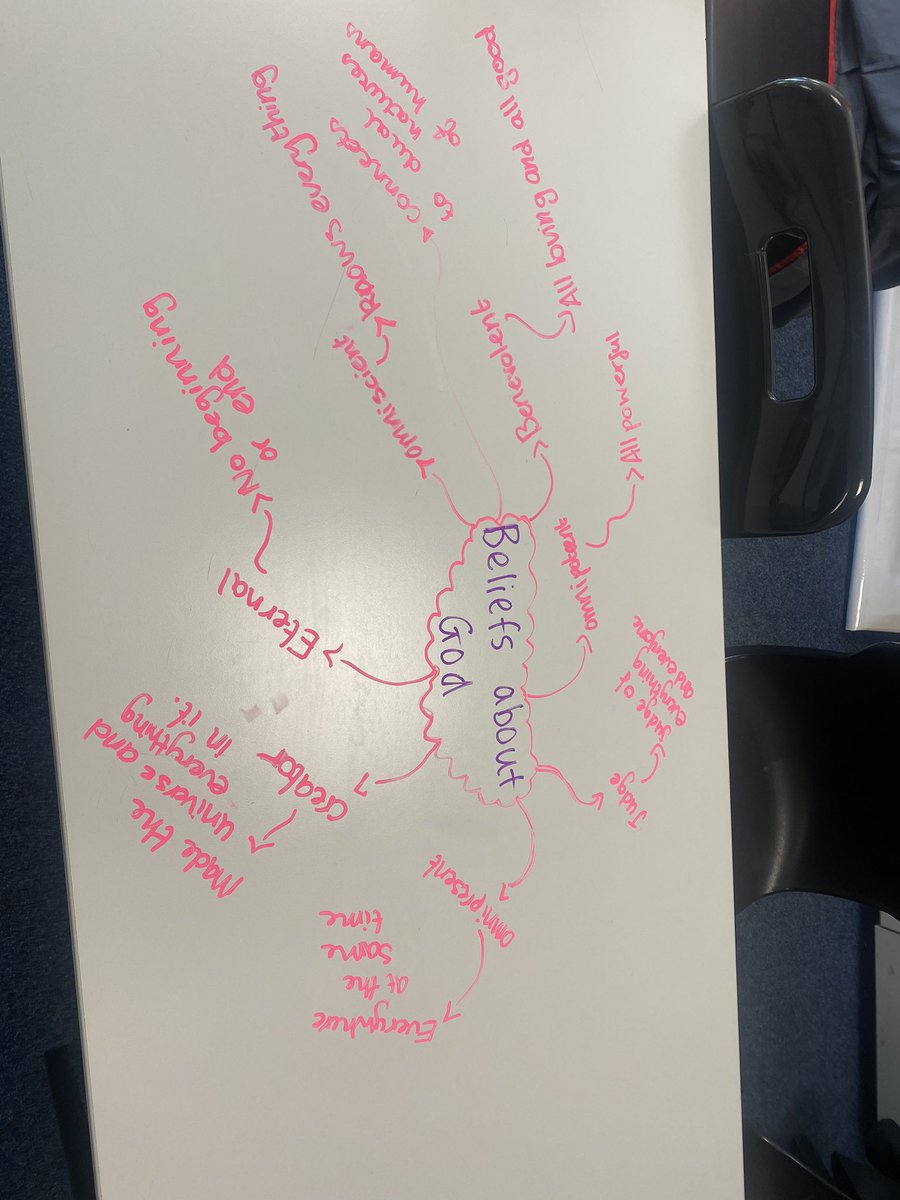 Beliefs about
God
Benevolent
All loving and all good
omnipotent
All powerful
Judge
judge of
everything
and everyone
omnipresent
Everywhere
at the
same
time
Creator
Made the
universe and
everything
in it.
Eternal
No beginning
or end
omniscient
knows everything
connects
to dual
natures
of
humans